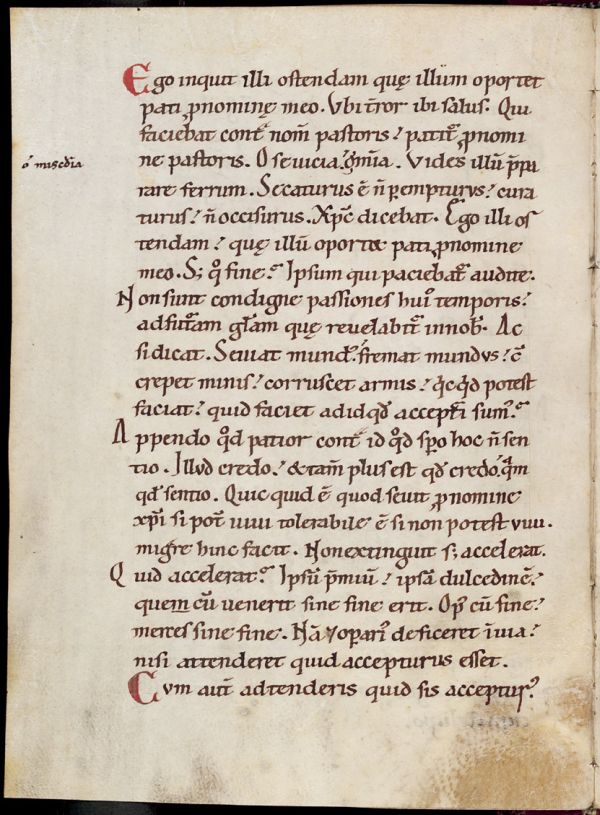 Ego inquit illi ostendam quę illum oportet
pati ꝓ nomine meo. Vbi t̄ror ibi salus. Qui
faciebat cont͛ nom̄ pastoris? patit᷑ ꝓ nomi
ne pastoris. O seuicia
ó misc̄dia
Vides illū p̄pa
rare ferrum. Secaturus ē n̄ peremptur&ꝰ? cura
turus? n̄ occisurus. Xp̄c dicebat. Ego illi os
tendam? quę illū oportet pati ꝓ nomine
meo. S; qͦ fine? Ipsum qui paciebat᷑ audite.
Non sunt condigne passiones huiꝰ temporis?
ad fut᷑am gl̄am quę reuelabit᷑ in nob̄. Ac
si dicat. Seuiat mundꝰ. fremat mundus? c̄
crepet minis? corruscet armis? qͥcqͥd potest
faciat? quid faciet ad id qd̄ accept᷑i sumꝰ?
Appendo qd̄ patior cont͛ id qd̄ sp̄o hoc n̄ sen
tio. Illud credo? & tam̄ plus est qd̄ credo, qͣm
qd̄ sentio. Quicquid ē quod seuit ꝓ nomine
xp̄i si pot̄ uiui tolerabile ē si non potest uiui.
migre hinc facit. Non extinguit s; accelerat.
Quid accelerat? Ipsū p̄miū? ipsā dulcedinē?
quem cū uenerit sine fine erit. Opꝰ cū fine?
merces sine fine. Nā & oparꝰ deficeret ī uia?
nisi attenderet quid accepturus esset.
Cum aut̄ adtenderis quid sis accepturꝰ